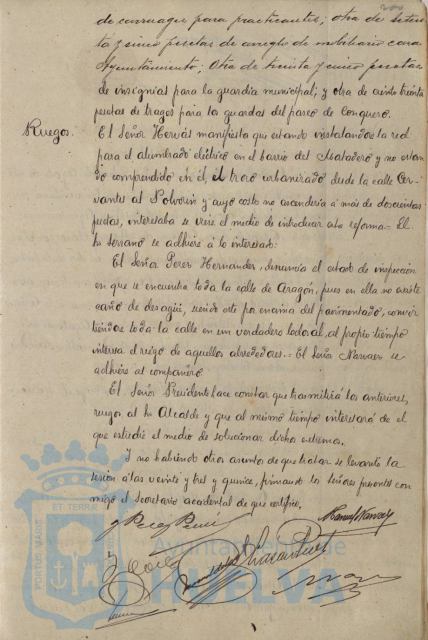 de carruages para practicantes; otra de seten-
ta y cinco pesetas de arreglo de mobiliario casa
Ayuntamiento; Otra de treinta y cinco pesetas
de insignias para la guardia municipal; y otra de ciento treinta
pesetas de trages para los guardas del paseo de Conquero.
Ruegos.
El Señor Hervás manifiesta que estando instalandose la red
para el alumbrado eléctrico en el barrio del Matadero y no estan-
do comprendido en él, el trozo urbanizado desde la calle Cer-
vantes al Polvorín y cuyo costo no ascendería a más de doscientas
pesetas, interesaba se viese el medio de introducir esta reforma.- El
Sr. Serrano se adhiere á lo interesado:
El Señor Perez Hernandez, denuncia el estado de inspección
en que se encuentra toda la calle de Aragón, pues en ella no existe
caño de desagüe, siendo este por encima del pavimentado, convir-
tiendose toda la calle en un verdadero lodazal, al propio tiempo
interesa el reizgo de aquellos alrededores.- El Señor Narvaez se
adhiere al compañero.
El Señor Presidente hace constar que transmitirá los anteriores
ruegos al Sr. Alcalde y que al mismo tiempo interesará de él
que estudie el medio de solucionar dichos extremos.
Y no habiendo otros asuntos de que tratar se levantó la
sesión a las veinte y tres y quince, firmando los señores presentes con-
migo el Secretario accidental de que certifico.
Manuel Narvaez
PORTUS MARIS ET TERRAE
Ayuntamiento de
HUELVA